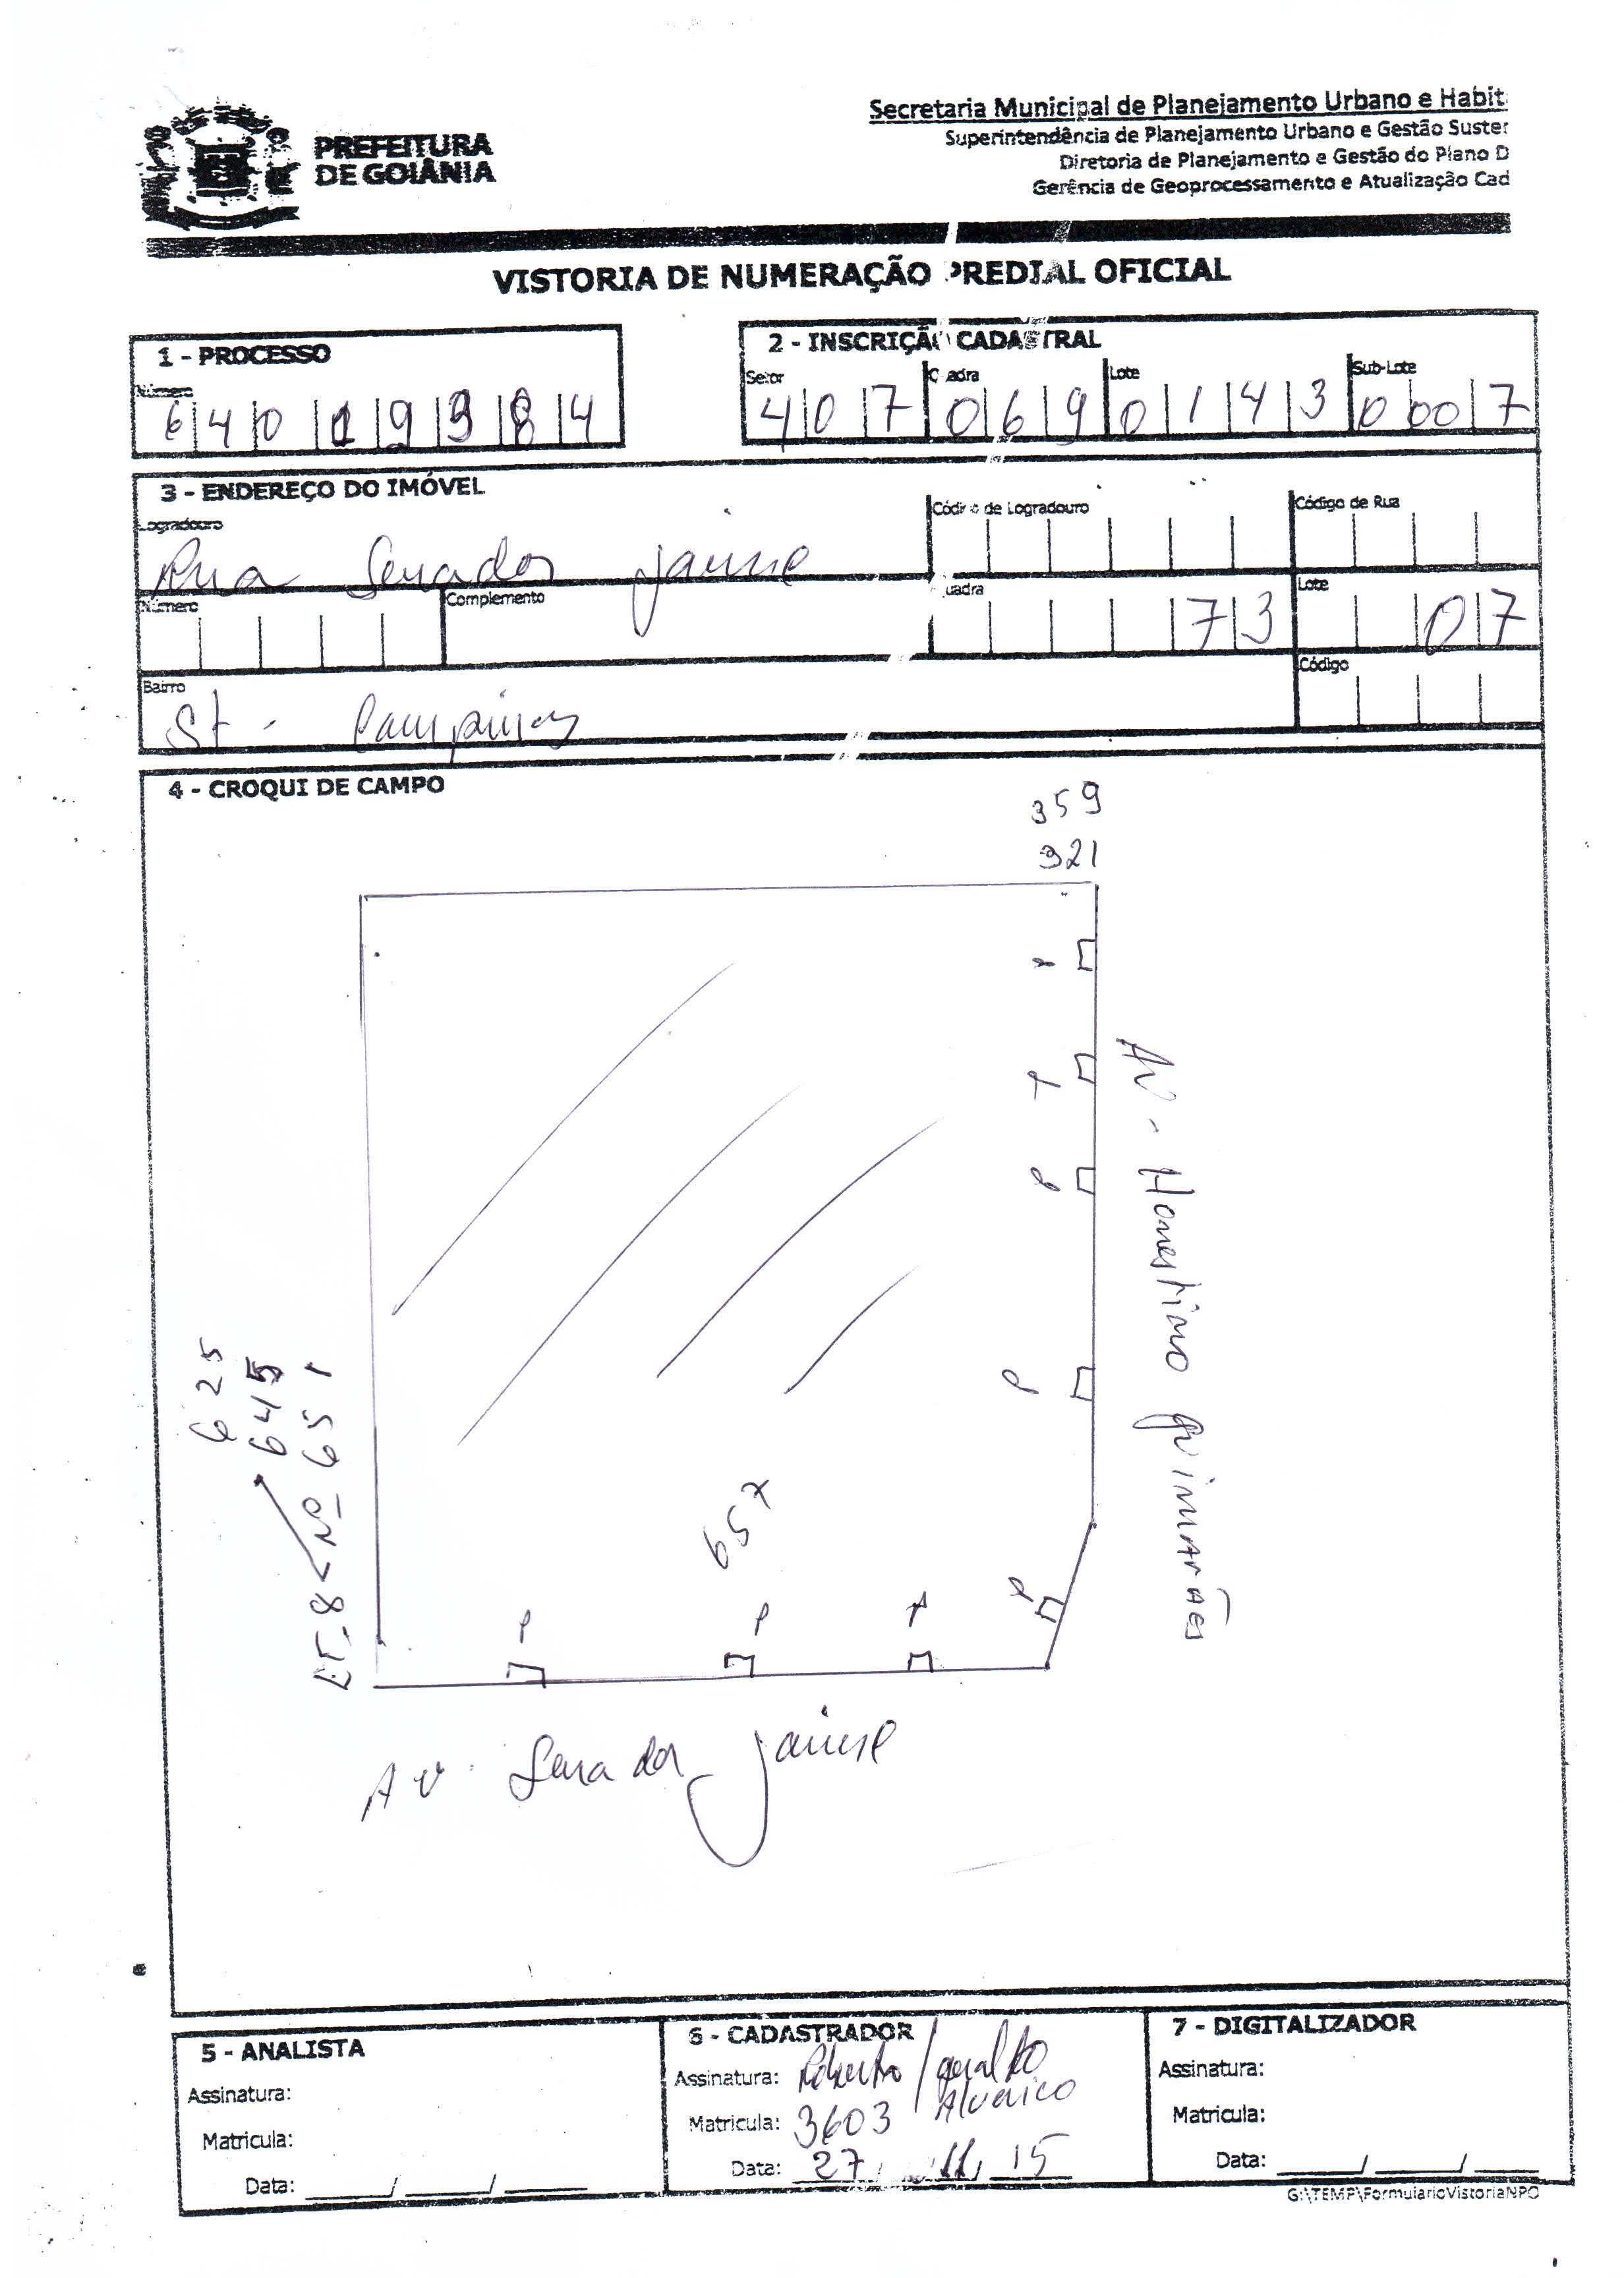 PREFEITURA
DE GOIÂNIA
Secretaria Municipal de Planejamento Urbano e Habit
Superintendência de Planejamento Urbano e Gestão Suster
Diretoria de Planejamento e Gestão do Plano D
Gerência de Geoprocessamento e Atualização Cad
VISTORIA DE NUMERAÇÃO PREDIAL OFICIAL
1 - PROCESSO
Número
6 4 0 1 9 9 8 4
2 - INSCRIÇÃO CADASTRAL
Setor Quadra Lote Sub-Lote
4 0 7 0 6 9 0 1 4 3 0 0 0 7
3 - ENDEREÇO DO IMÓVEL
Logradouro Código de Logradouro Código de Rua
Rua Senador Jaime
Número Complemento Quadra Lote
7 3 0 7
Bairro Código
St - Campinas
4 - CROQUI DE CAMPO
359
321
P
P
P
P
P
Av - Honestino Guimarães
625
645
LT-8 Nº 651
657
P P P
Av. Senador Jaime
5 - ANALISTA
Assinatura:
Matricula:
Data: ____/____/____
6 - CADASTRADOR
Assinatura: Roberto / Geraldo
Alverico
Matricula: 3603
Data: 27/11/15
7 - DIGITALIZADOR
Assinatura:
Matricula:
Data: ____/____/____
G:\TEMP\FormularioVistoriaNPO